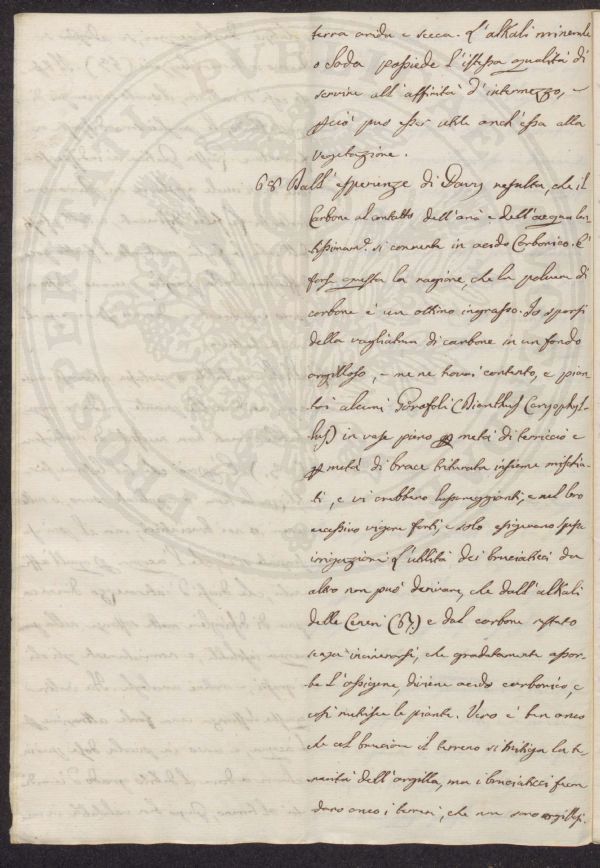 terra arida e secca. L'alkali minerale
o Soda possiede l'istessa qualità di
servire all'affinità d'intermezzo, e
può esser utile anch'essa alla
vegetazione.
68 Dall'esperienze di Davy resulta, che il
Carbone al contatto dell'aria e dell'acqua len
tissimam.e si converte in acido Carbonico. È
forse questa la ragione, che la polvere di
carbone è un ottimo ingrasso. Io sparsi
della vagliatura di carbone in un fondo
argilloso, e me ne trovai contento, e pian
tai alcuni Garofoli (Dianthus Caryophyl-
lus) in vase pieno p metà di terriccio e
p metà di brace triturata insieme mischia-
ti, e vi crebbero lussureggianti, e nel loro
eccessivo vigore forti, e solo esigevano spesse
irrigazioni. L'utilità dei bruciaticci da
altro non può derivare, che dall'alkali
delle Ceneri (67.) e dal carbone restato
senza incinerarsi, che gradatamente assor-
be l'ossigene, diviene acido carbonico, e
così nutrisce le piante. Vero è ben anco
che col bruciare il terreno si mitiga la te-
nacità dell'argilla, ma i bruciaticci fecon
dano anco i terreni, che non sono argillosi.